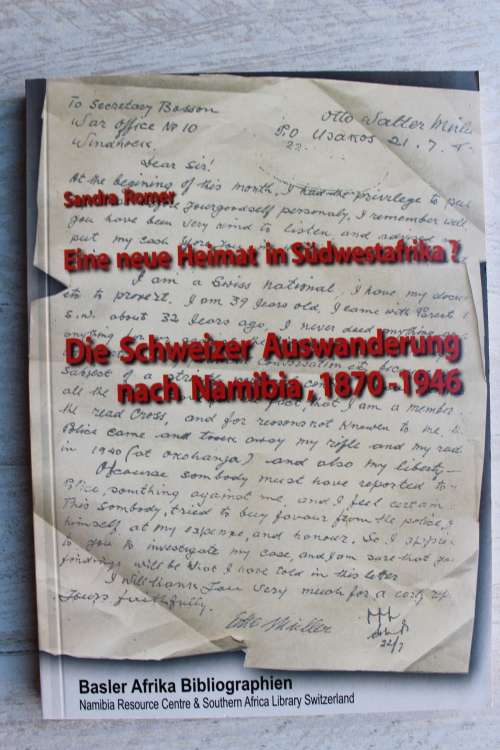 To Secretary Bosson
War Office No 10
Windhoek
Otto Walter Müll
P.O Usakos 21.7.
22.
Dear Sir!
At the begining of this month, I had the privilege to put
Sandra Romer
yourgoodself personaly, I remember well
you have been very kind to listen and
put my case
Eine neue Heimat in Südwestafrika?
I am a Swiss national, I have my docu
ets to proveit. I am 39 Years old, I came with Parent
S.W. about 32 Years ago, I never deed anything
Die Schweizer Auswanderung
Conversation
subject of a
nach Namibia, 1870-1946
all the fact, that I am a member
the read Cross, and for reasons not knowen to me,
Police came and took away my rifle and my rad
in 1940 (at Okahanja) and also my liberty —
Ofcourse sombody must have reported to
Police, somthing against me, and I feel certain
This sombody, tried to buy favour from the police,
himself, at my expense, and honour. So I
to you to investigate my case, and I am sure that
findings will be what I have told in this letter
I will thank You very much for a early
Yours faithfully.
Otto Müller
22/7
Basler Afrika Bibliographien
Namibia Resource Centre & Southern Africa Library Switzerland